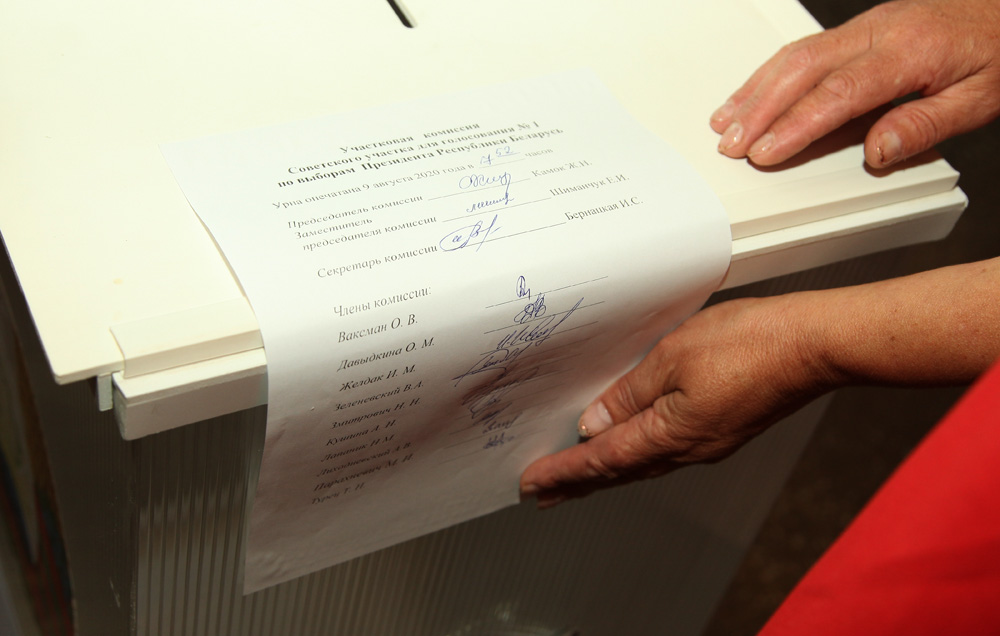 Участковая комиссия
Советского участка для голосования № 1
по выборам Президента Республики Беларусь
Урна опечатана 9 августа 2020 года в часов
Председатель комиссии Камок Ж.Н.
Заместитель
председателя комиссии Шиманчук Е.И.
Секретарь комиссии Бернацкая И.С.
Члены комиссии:
Ваксман О. В.
Давыдкина О. М.
Желдак И. М.
Зеленевский В.А.
Змитрович Н. Н.
Кушина А. И.
И М
А.В.
Парахневич М. И.
Турок Т. И.